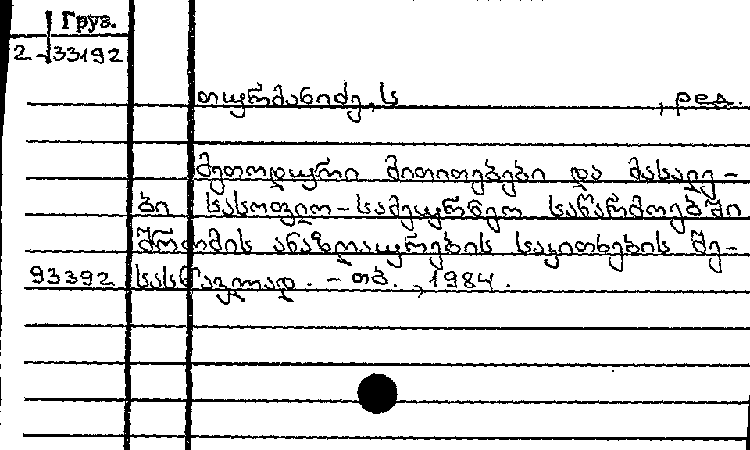 Груз.
2-33192
თურმანიძე, ს , ред.
მეთოდური მითითებები და მასალე-
ბი სასოფლო-სამეურნეო საწარმოებში
შრომის ანაზღაურების საკითხების შე-
93392 სასწავლად. - თბ., 1984.